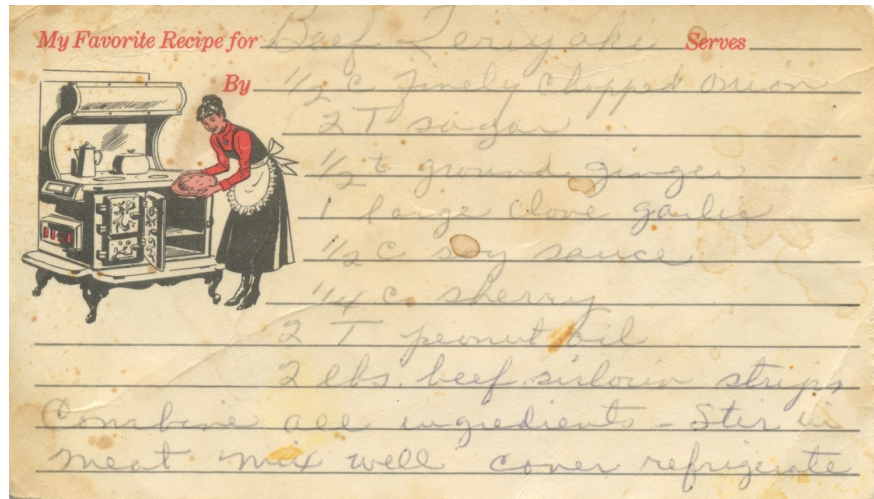 My Favorite Recipe for Beef Teriyaki Serves
By 1/2 c finely chopped onion
2 T sugar
1/2 t ground ginger
1 large clove garlic
1/2 c soy sauce
1/4 c. sherry
2 T peanut oil
2 lbs. beef sirloin strips
Combine all ingredients - Stir in
meat mix well cover refrigerate